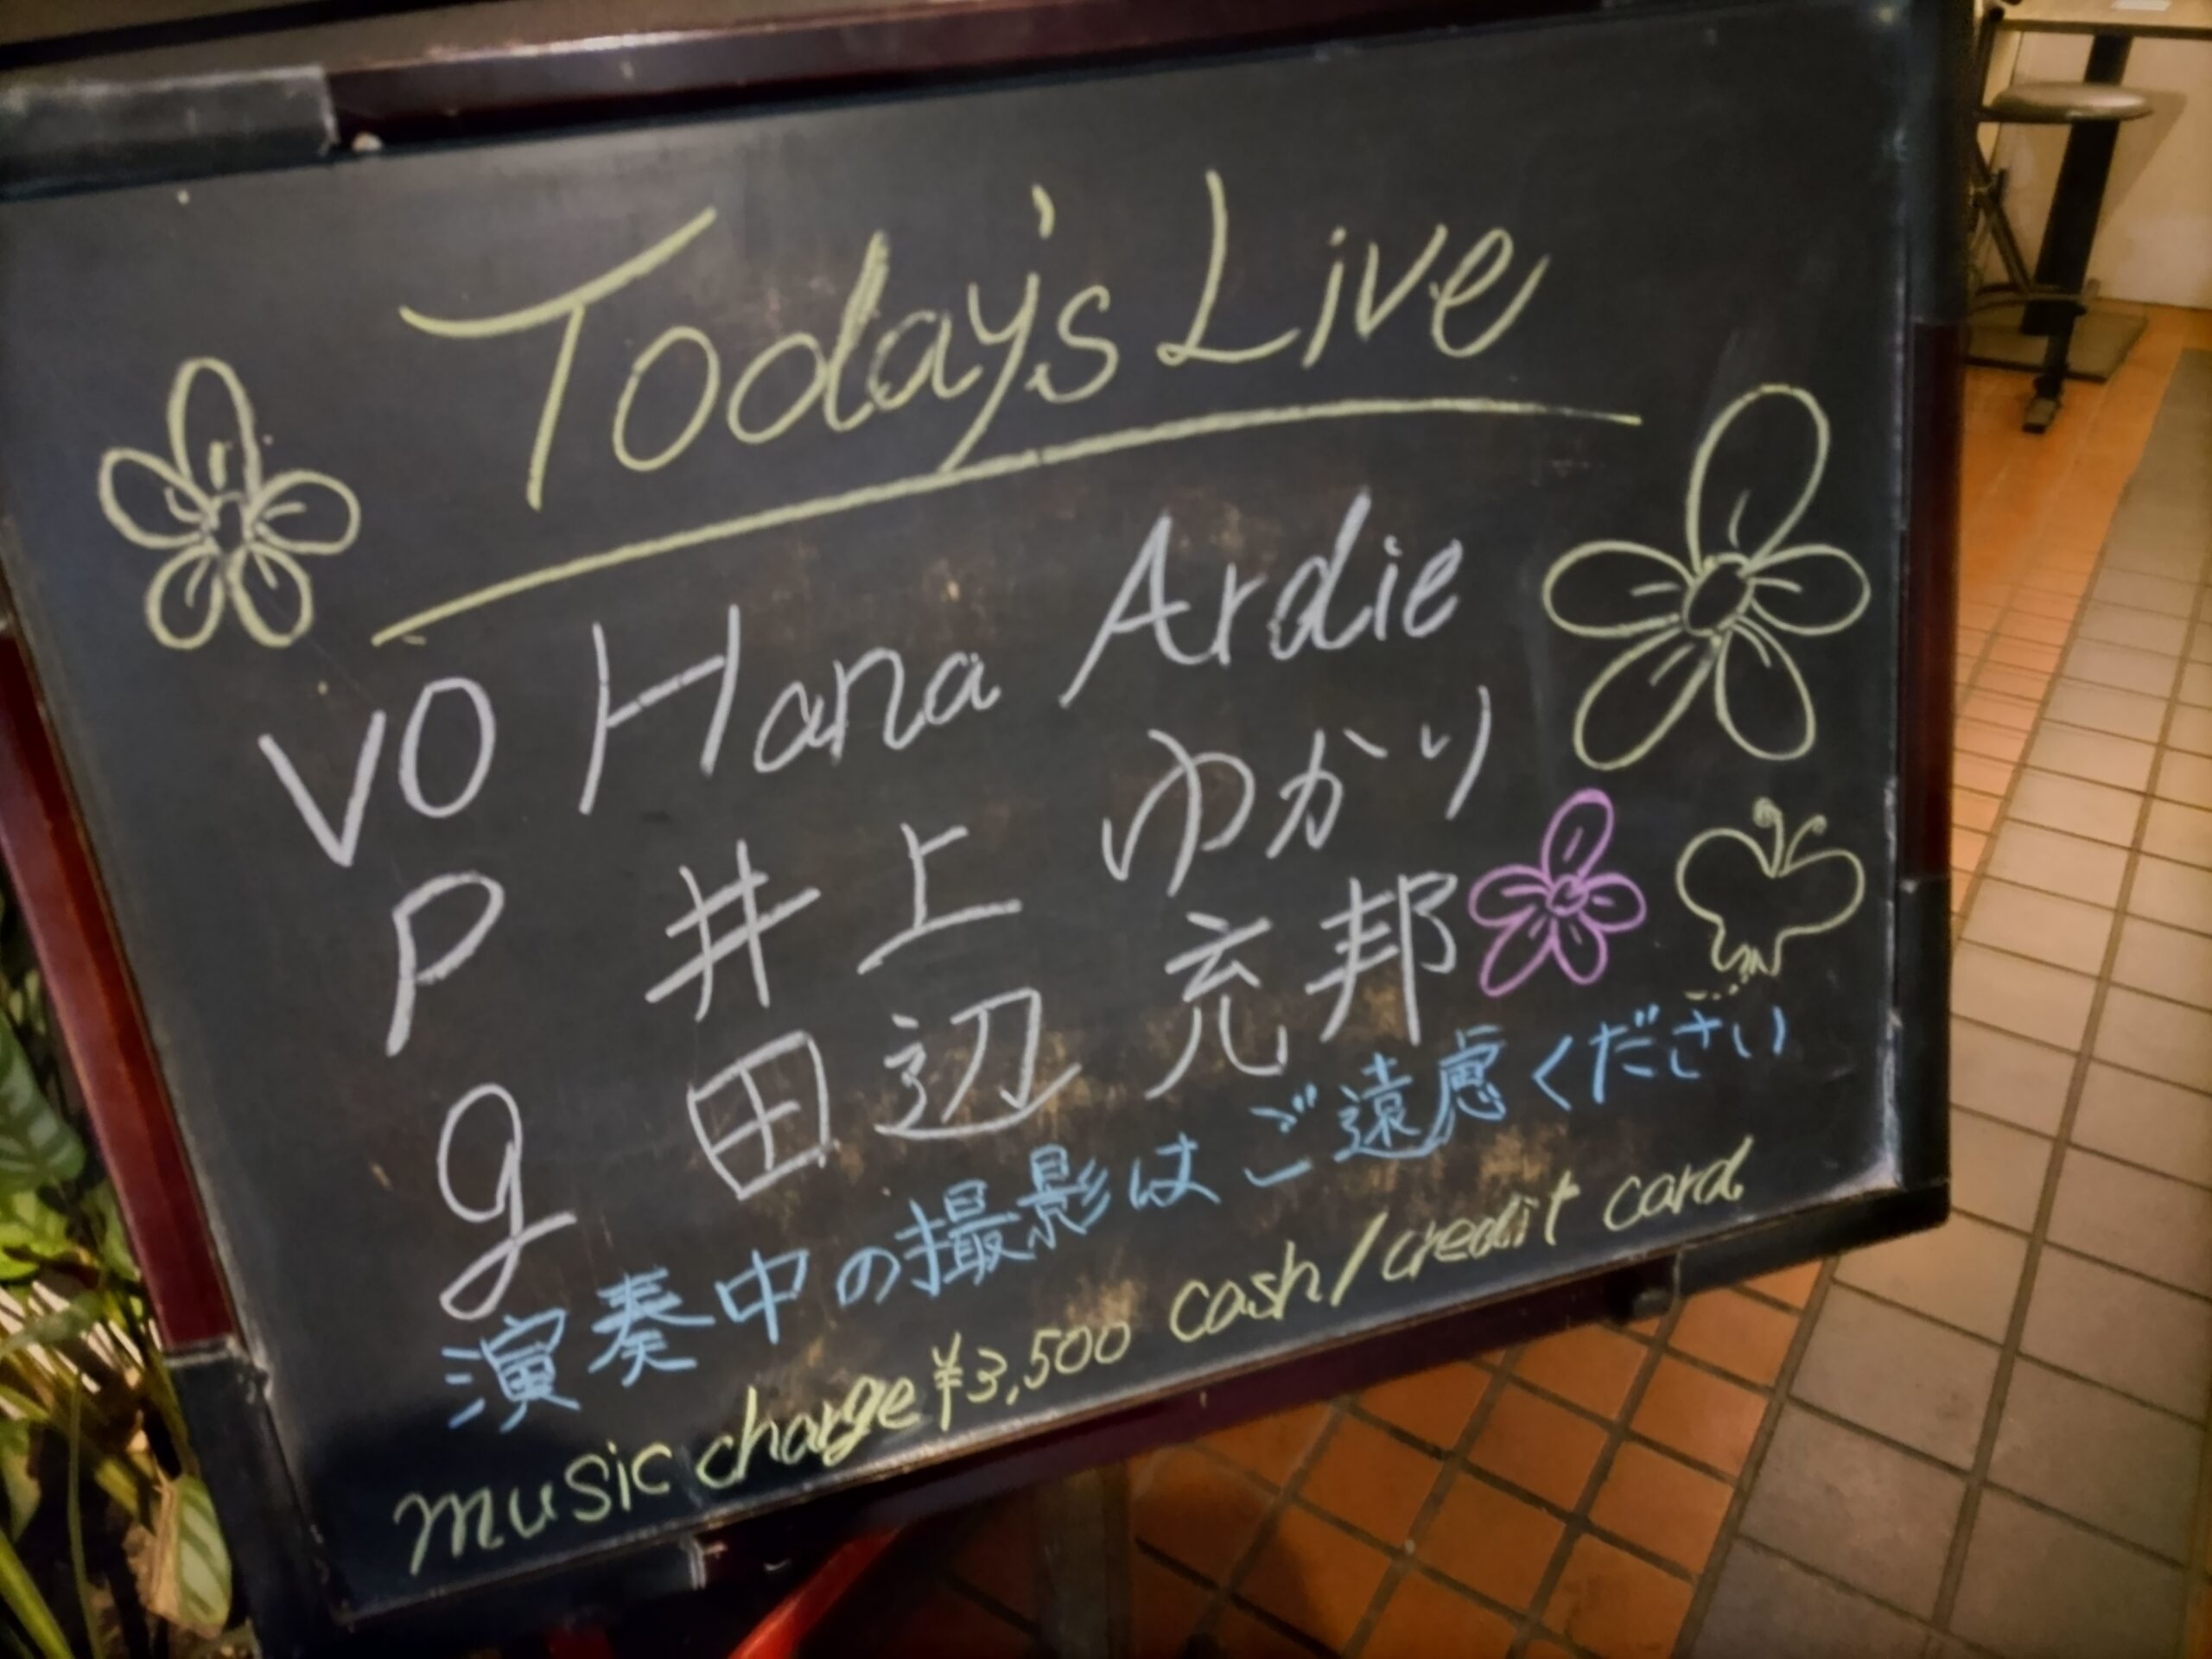 Today's Live
VO Hana Ardie
P 井上 ゆかり
g 田辺 充邦
演奏中の撮影はご遠慮ください
music charge ¥3,500 cash/credit card